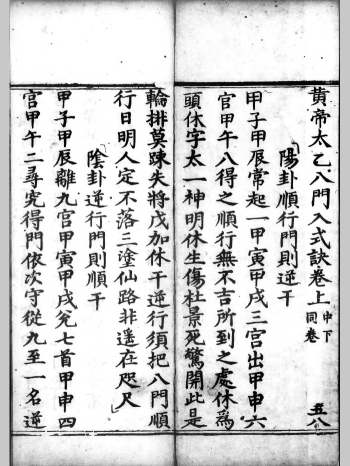 黃帝太乙八門入式訣卷上 中下同卷 五八
陽卦順行門則逆干
甲子甲辰常起一甲寅甲戌三宮出甲申六
宮甲午八得之順行無不吉所到之處休為
頭休字太一神明休生傷杜景死驚開此是
輪排莫踈失將戊加休干逆行須把八門順
行日明人定不落三塗仙路非遥在咫尺
陰卦逆行門則順干
甲子甲辰離九宮甲寅甲戌兊七首甲申四
宮甲午二尋究得門依次守從九至一名逆